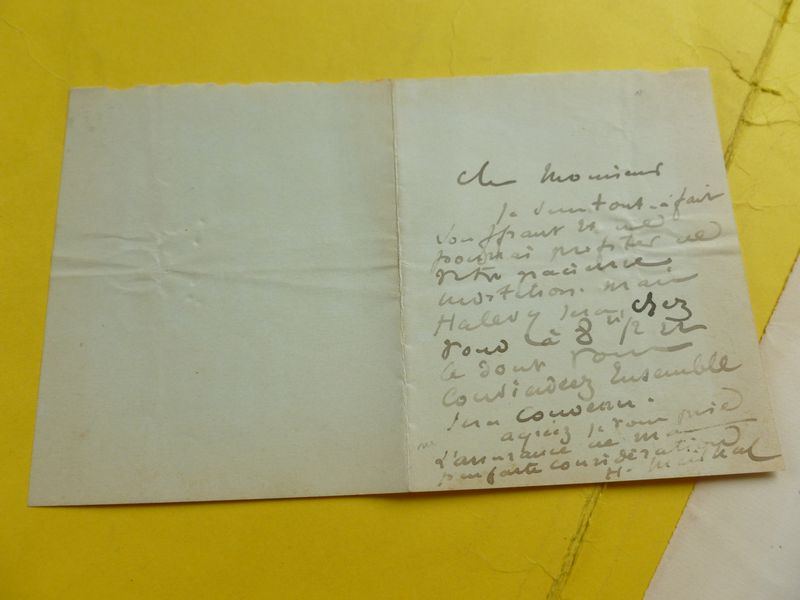 Cher Monsieur
Je suis tout-à-fait
souffrant et ne
pourrai profiter de
votre gracieuse
invitation. mais
Halevy sera chez
vous à 8 h 1/2 et
ce dont vous
conviendrez Ensemble
sera convenu.
agréez je vous prie
L'assurance de ma
parfaite considération
H. Meilhac